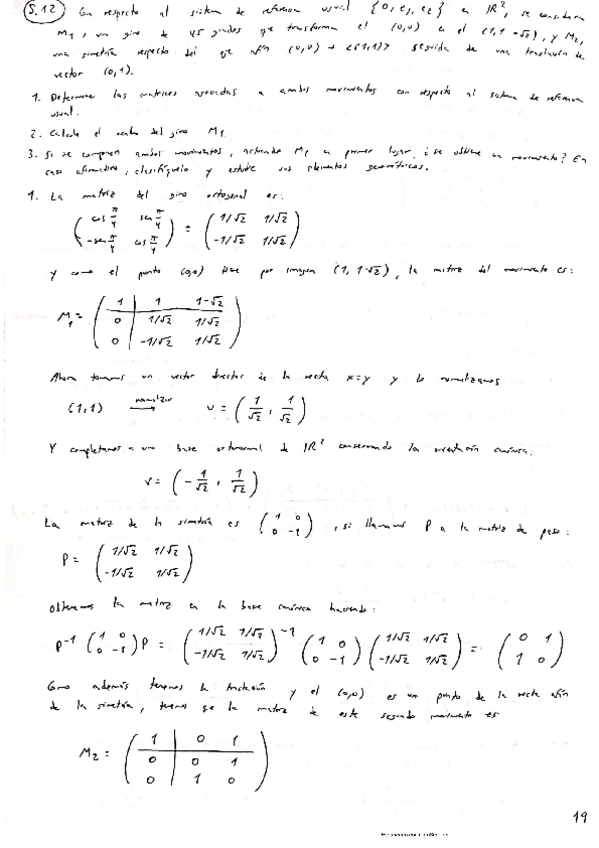 5.12 Con respecto al sistema de referencia usual {0, e1, e2} en IR², se consideran
M1, un giro de 45 grados que transforma el (0,0) en el (1, 1-√2), y M2,
una simetría respecto del eje afín (0,0) + <(1,1)> seguida de una traslación de
vector (0,1).
1. Determine las matrices asociadas a ambos movimientos con respecto al sistema de referencia
usual.
2. Calcule el centro del giro M1.
3. Si se componen ambos movimientos, actuando M1 en primer lugar, ¿se obtiene un movimiento? En
caso afirmativo, clasifíquelo y estudie sus elementos geométricos.
1. La matriz del giro ortogonal es:
( cos π/4 sen π/4 ) = ( 1/√2 1/√2 )
( -sen π/4 cos π/4 ) ( -1/√2 1/√2 )
y como el punto (0,0) tiene por imagen (1, 1-√2), la matriz del movimiento es:
M1 = ( 1 | 1 1-√2 )
( 0 | 1/√2 1/√2 )
( 0 | -1/√2 1/√2 )
Ahora tomamos un vector director de la recta x=y y lo normalizamos
(1,1) normalizar → v = (1/√2, 1/√2)
Y completamos a una base ortonormal de IR² conservando la orientación canónica:
v = (-1/√2, 1/√2)
La matriz de la simetría es ( 1 0 ) , si llamamos P a la matriz de paso:
( 0 -1 )
P = ( 1/√2 1/√2 )
( -1/√2 1/√2 )
Obtenemos la matriz en la base canónica haciendo:
P⁻¹ ( 1 0 ) P = ( 1/√2 1/√2 )⁻¹ ( 1 0 ) ( 1/√2 1/√2 ) = ( 0 1 )
( 0 -1 ) ( -1/√2 1/√2 ) ( 0 -1 ) ( -1/√2 1/√2 ) ( 1 0 )
Como además tenemos la traslación y el (0,0) es un punto de la recta afín
de la simetría, tenemos que la matriz de este segundo movimiento es
M2 = ( 1 | 0 1 )
( 0 | 0 1 )
( 0 | 1 0 )
19